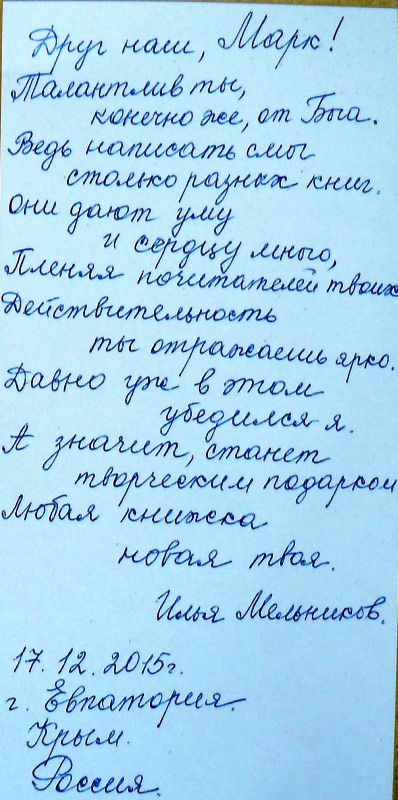 Друг наш, Марк!
Талантлив ты,
конечно же, от Бога.
Ведь написать смог
столько разных книг.
Они дают уму
и сердцу много,
Пленяя почитателей твоих.
Действительность
ты отражаешь ярко.
Давно уж в этом
убедился я.
А значит, станет
творческим подарком
Любая книжка
новая твоя.
Илья Мельников.
17.12.2015г.
г. Евпатория.
Крым.
Россия.